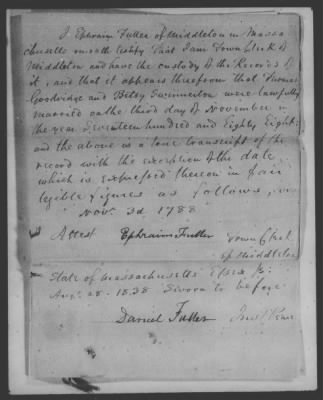 I Ephraim Fuller of Middleton in Massa
chusetts on oath testify that I am Town Clerk of
Middleton and have the custody of the Records of
it, and that it appears therefrom that Thomas
Goodridge and Betsy Swinnerton were lawfully
married on the third day of November in
the year Seventeen hundred and Eighty Eight:
and the above is a true transcript of the
record with the exception of the date
which is expressed thereon in fair
legible figures as follows,
Nov. 3d 1788
Attest Ephraim Fuller Town Clerk
of Middleton
State of Massachusetts Essex ss:
Aug. 28. 1838 Sworn to before
Daniel Fuller Just Peace